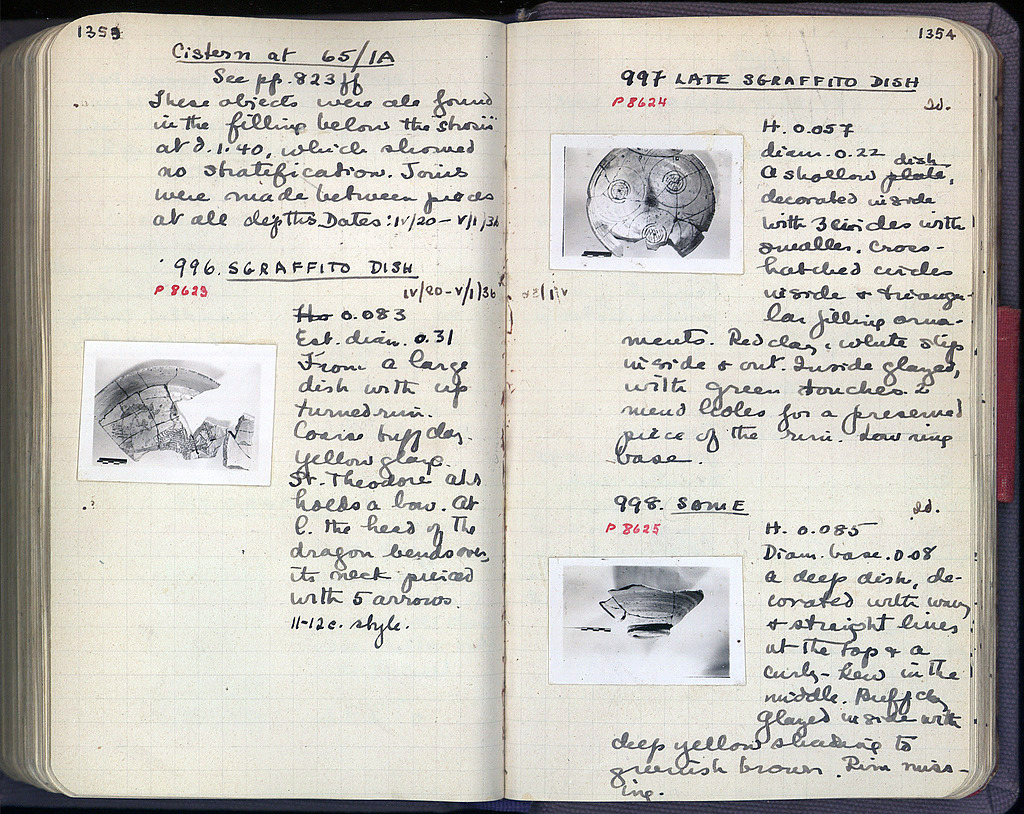 1353
Cistern at 65/1A
See pp. 823 ff
These objects were all found
in the filling below the strosis
at d. 1.40, which showed
no stratification. Joins
were made between pieces
at all depths. Dates: IV/20 – V/1/36
996. SGRAFFITO DISH
P 8623
IV/20–V/1/36
H. 0.083
Est. diam. 0.31
From a large
dish with up
turned rim.
Coarse buff clay.
Yellow glaze.
St. Theodore at r.
holds a bow. At
l. the head of the
dragon bends over,
its neck pierced
with 5 arrows.
11–12 c. style.
1354
997 LATE SGRAFFITO DISH
P 8624
Id.
H. 0.057
diam. 0.22
dish
A shallow plate,
decorated inside
with 3 circles with
smaller, cross-
hatched circles
inside & triangu-
lar filling orna-
ments. Red clay, white slip
inside & out. Inside glazed,
with green touches. 2
mend holes for a preserved
piece of the rim. Low ring
base.
998. SAME
P 8625
Id.
H. 0.085
Diam. base. 0.08
A deep dish, de-
corated with wavy
& straight lines
at the top & a
curly-kew in the
middle. Buff clay
Glazed inside with
deep yellow shading to
greenish brown. Rim miss-
ing.